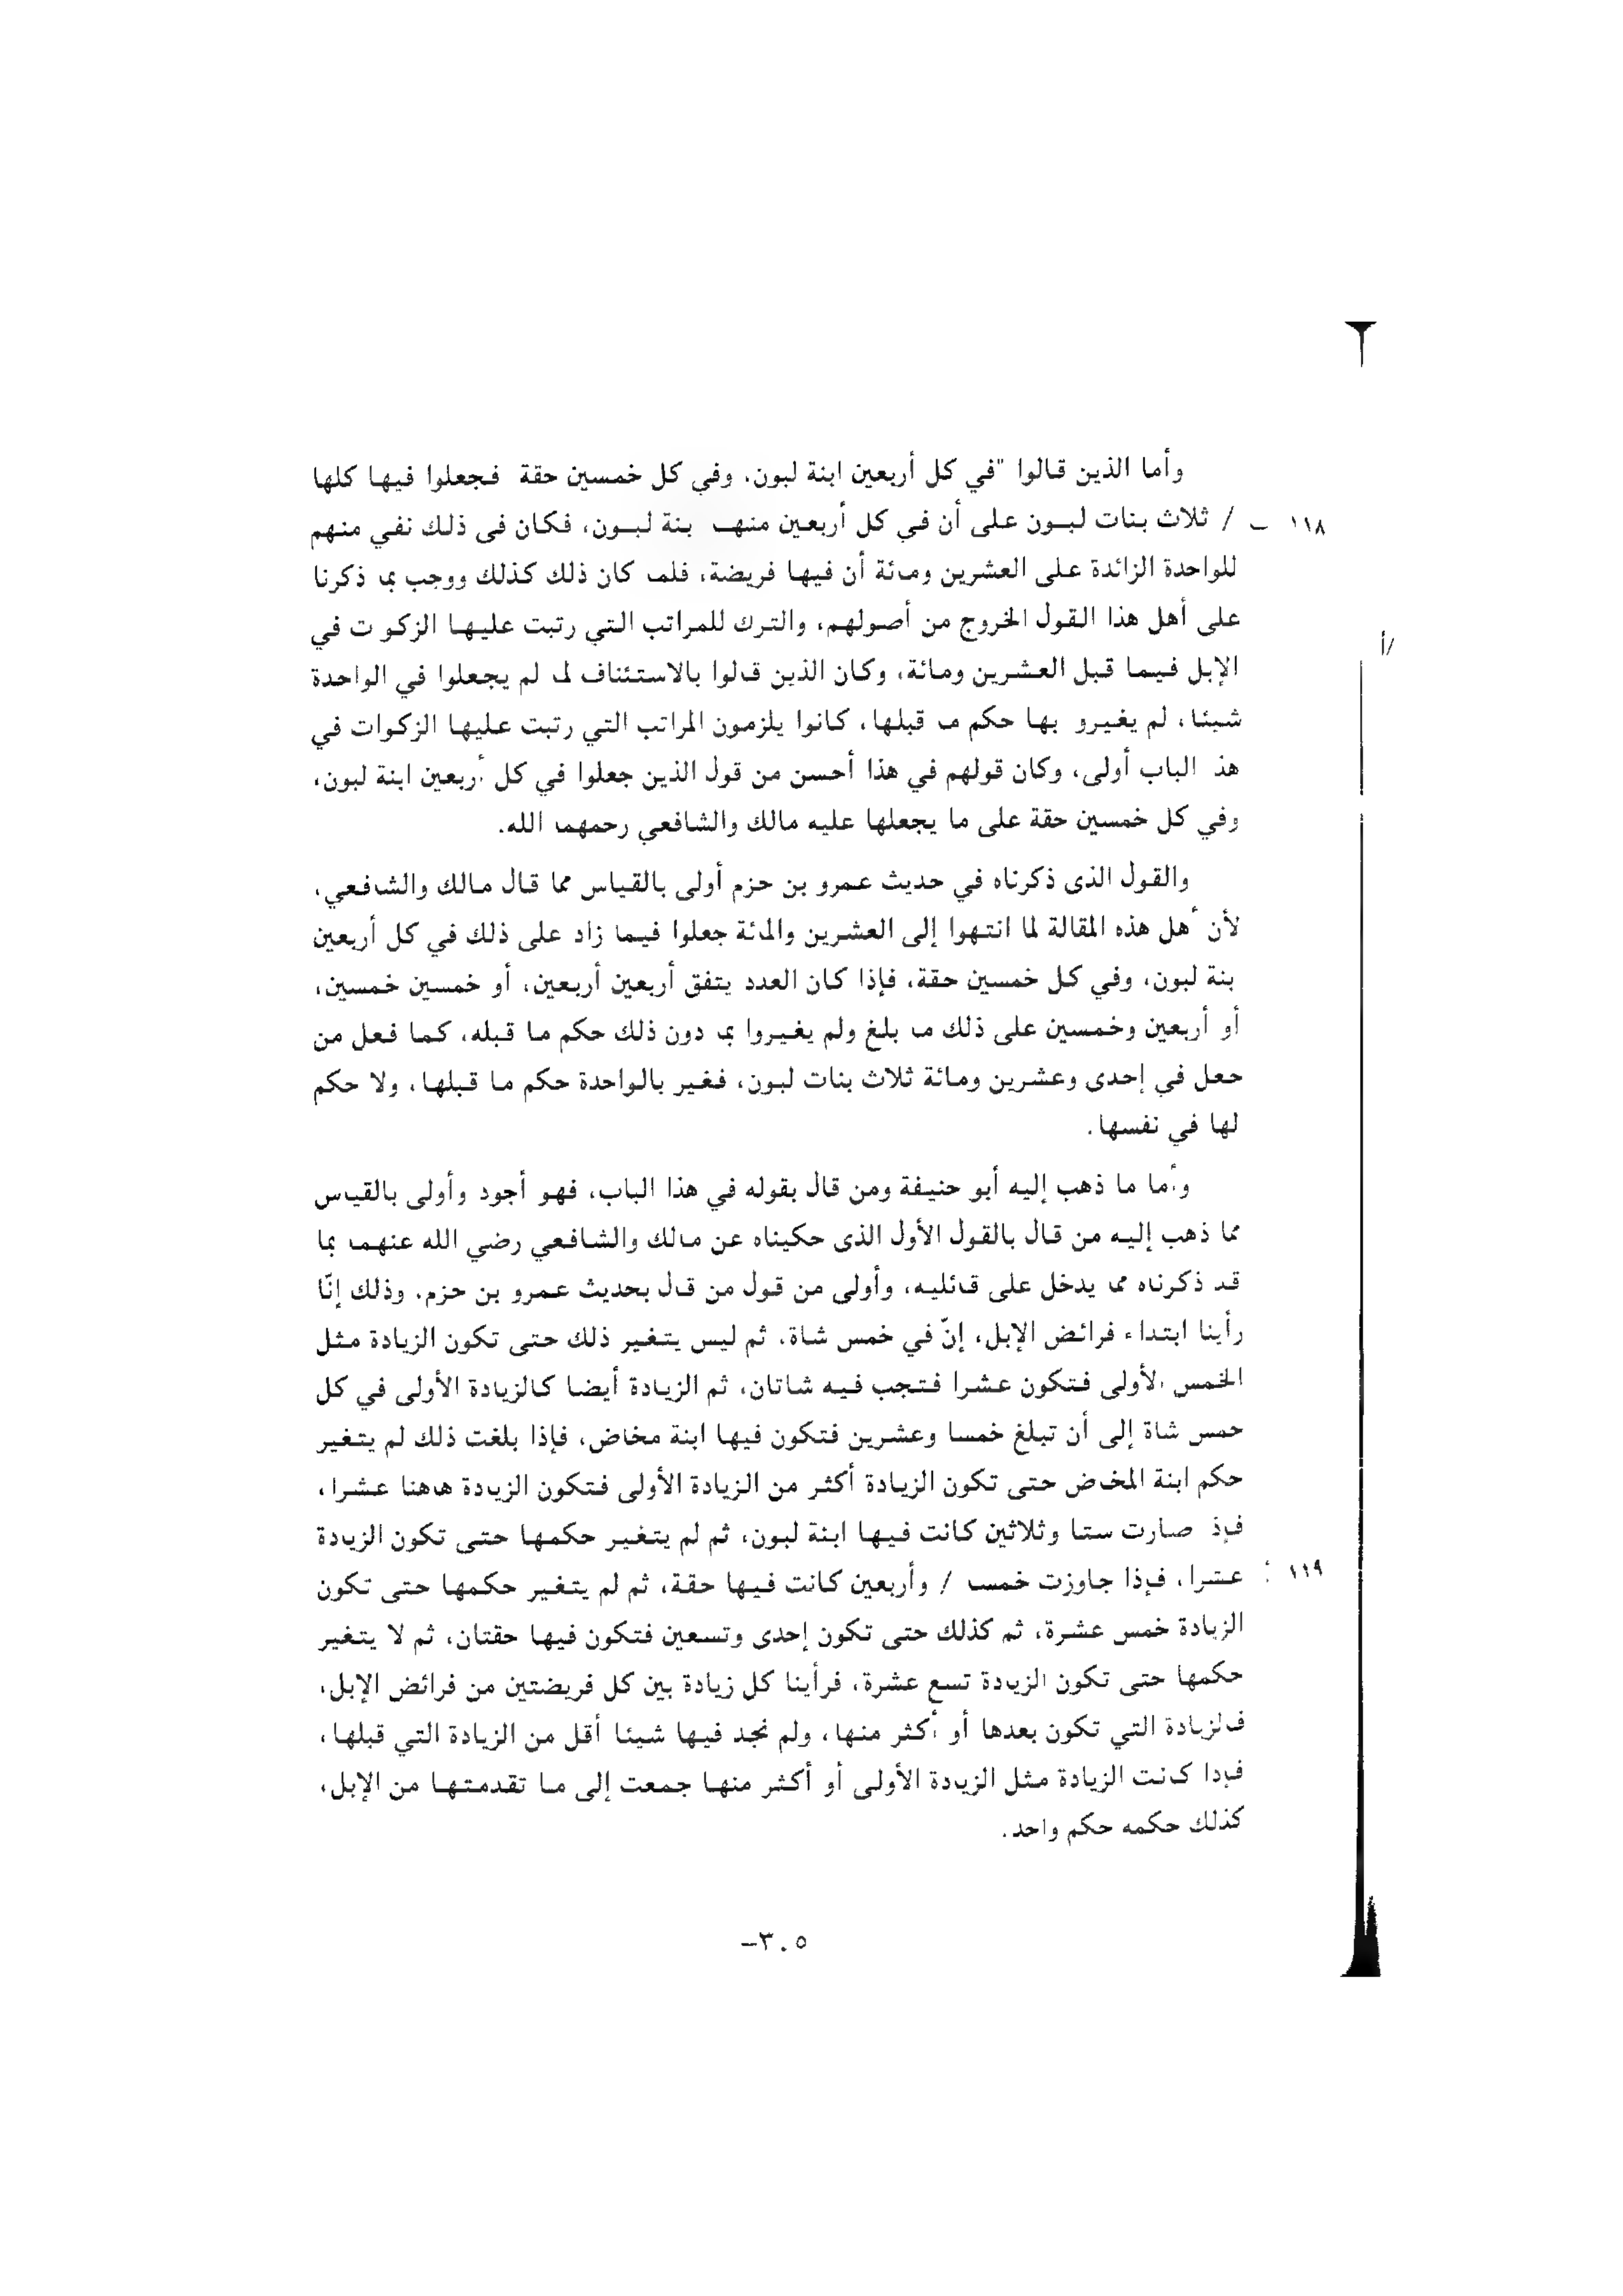 وأما الذين قالوا "في كل أربعين ابنة لبون، وفي كل خمسين حقة فجعلوا فيها كلها
١١٨ ـ / ثلاث بنات لبون على أن في كل أربعين منها بنة لبون، فكان فى ذلك نفي منهم
للواحدة الزائدة على العشرين ومائة أن فيها فريضة، فلما كان ذلك كذلك ووجب بما ذكرنا
على أهل هذا القول الخروج من أصولهم، والترك للمراتب التي رتبت عليها الزكوات في
/أ
الإبل فيما قبل العشرين ومائة، وكان الذين قالوا بالاستئناف لما لم يجعلوا في الواحدة
شيئا، لم يغيرو بها حكم ما قبلها، كانوا يلزمون المراتب التي رتبت عليها الزكوات في
هذ الباب أولى، وكان قولهم في هذا أحسن من قول الذين جعلوا في كل أربعين ابنة لبون،
وفي كل خمسين حقة على ما يجعلها عليه مالك والشافعي رحمهما الله.
والقول الذى ذكرناه في حديث عمرو بن حزم أولى بالقياس مما قال مالك والشافعي،
لأن أهل هذه المقالة لما انتهوا إلى العشرين والمائة جعلوا فيما زاد على ذلك في كل أربعين
بنة لبون، وفي كل خمسين حقة، فإذا كان العدد يتفق أربعين أربعين، أو خمسين خمسين،
أو أربعين وخمسين على ذلك ما بلغ ولم يغيروا بما دون ذلك حكم ما قبله، كما فعل من
جعل في إحدى وعشرين ومائة ثلاث بنات لبون، فغير بالواحدة حكم ما قبلها، ولا حكم
لها في نفسها.
وأما ما ذهب إليه أبو حنيفة ومن قال بقوله في هذا الباب، فهو أجود وأولى بالقياس
مما ذهب إليه من قال بالقول الأول الذى حكيناه عن مالك والشافعي رضي الله عنهما بما
قد ذكرناه مما يدخل على قائليه، وأولى من قول من قال بحديث عمرو بن حزم. وذلك إنّا
رأينا ابتداء فرائض الإبل، إنّ في خمس شاة، ثم ليس يتغير ذلك حتى تكون الزيادة مثل
الخمس الأولى فتكون عشرا فتجب فيه شاتان، ثم الزيادة أيضا كالزيادة الأولى في كل
خمس شاة إلى أن تبلغ خمسا وعشرين فتكون فيها ابنة مخاض، فإذا بلغت ذلك لم يتغير
حكم ابنة المخاض حتى تكون الزيادة أكثر من الزيادة الأولى فتكون الزيادة هاهنا عشرا،
فإذ صارت ستا وثلاثين كانت فيها ابنة لبون، ثم لم يتغير حكمها حتى تكون الزيادة
١١٩ عشرا، فإذا جاوزت خمسا / وأربعين كانت فيها حقة، ثم لم يتغير حكمها حتى تكون
الزيادة خمس عشرة، ثم كذلك حتى تكون إحدى وتسعين فتكون فيها حقتان، ثم لا يتغير
حكمها حتى تكون الزيادة تسع عشرة، فرأينا كل زيادة بين كل فريضتين من فرائض الإبل،
فالزيادة التي تكون بعدها أو أكثر منها، ولم نجد فيها شيئا أقل من الزيادة التي قبلها،
فإذا كانت الزيادة مثل الزيادة الأولى أو أكثر منها جمعت إلى ما تقدمتها من الإبل،
كذلك حكمه حكم واحد.
٣٠٥-